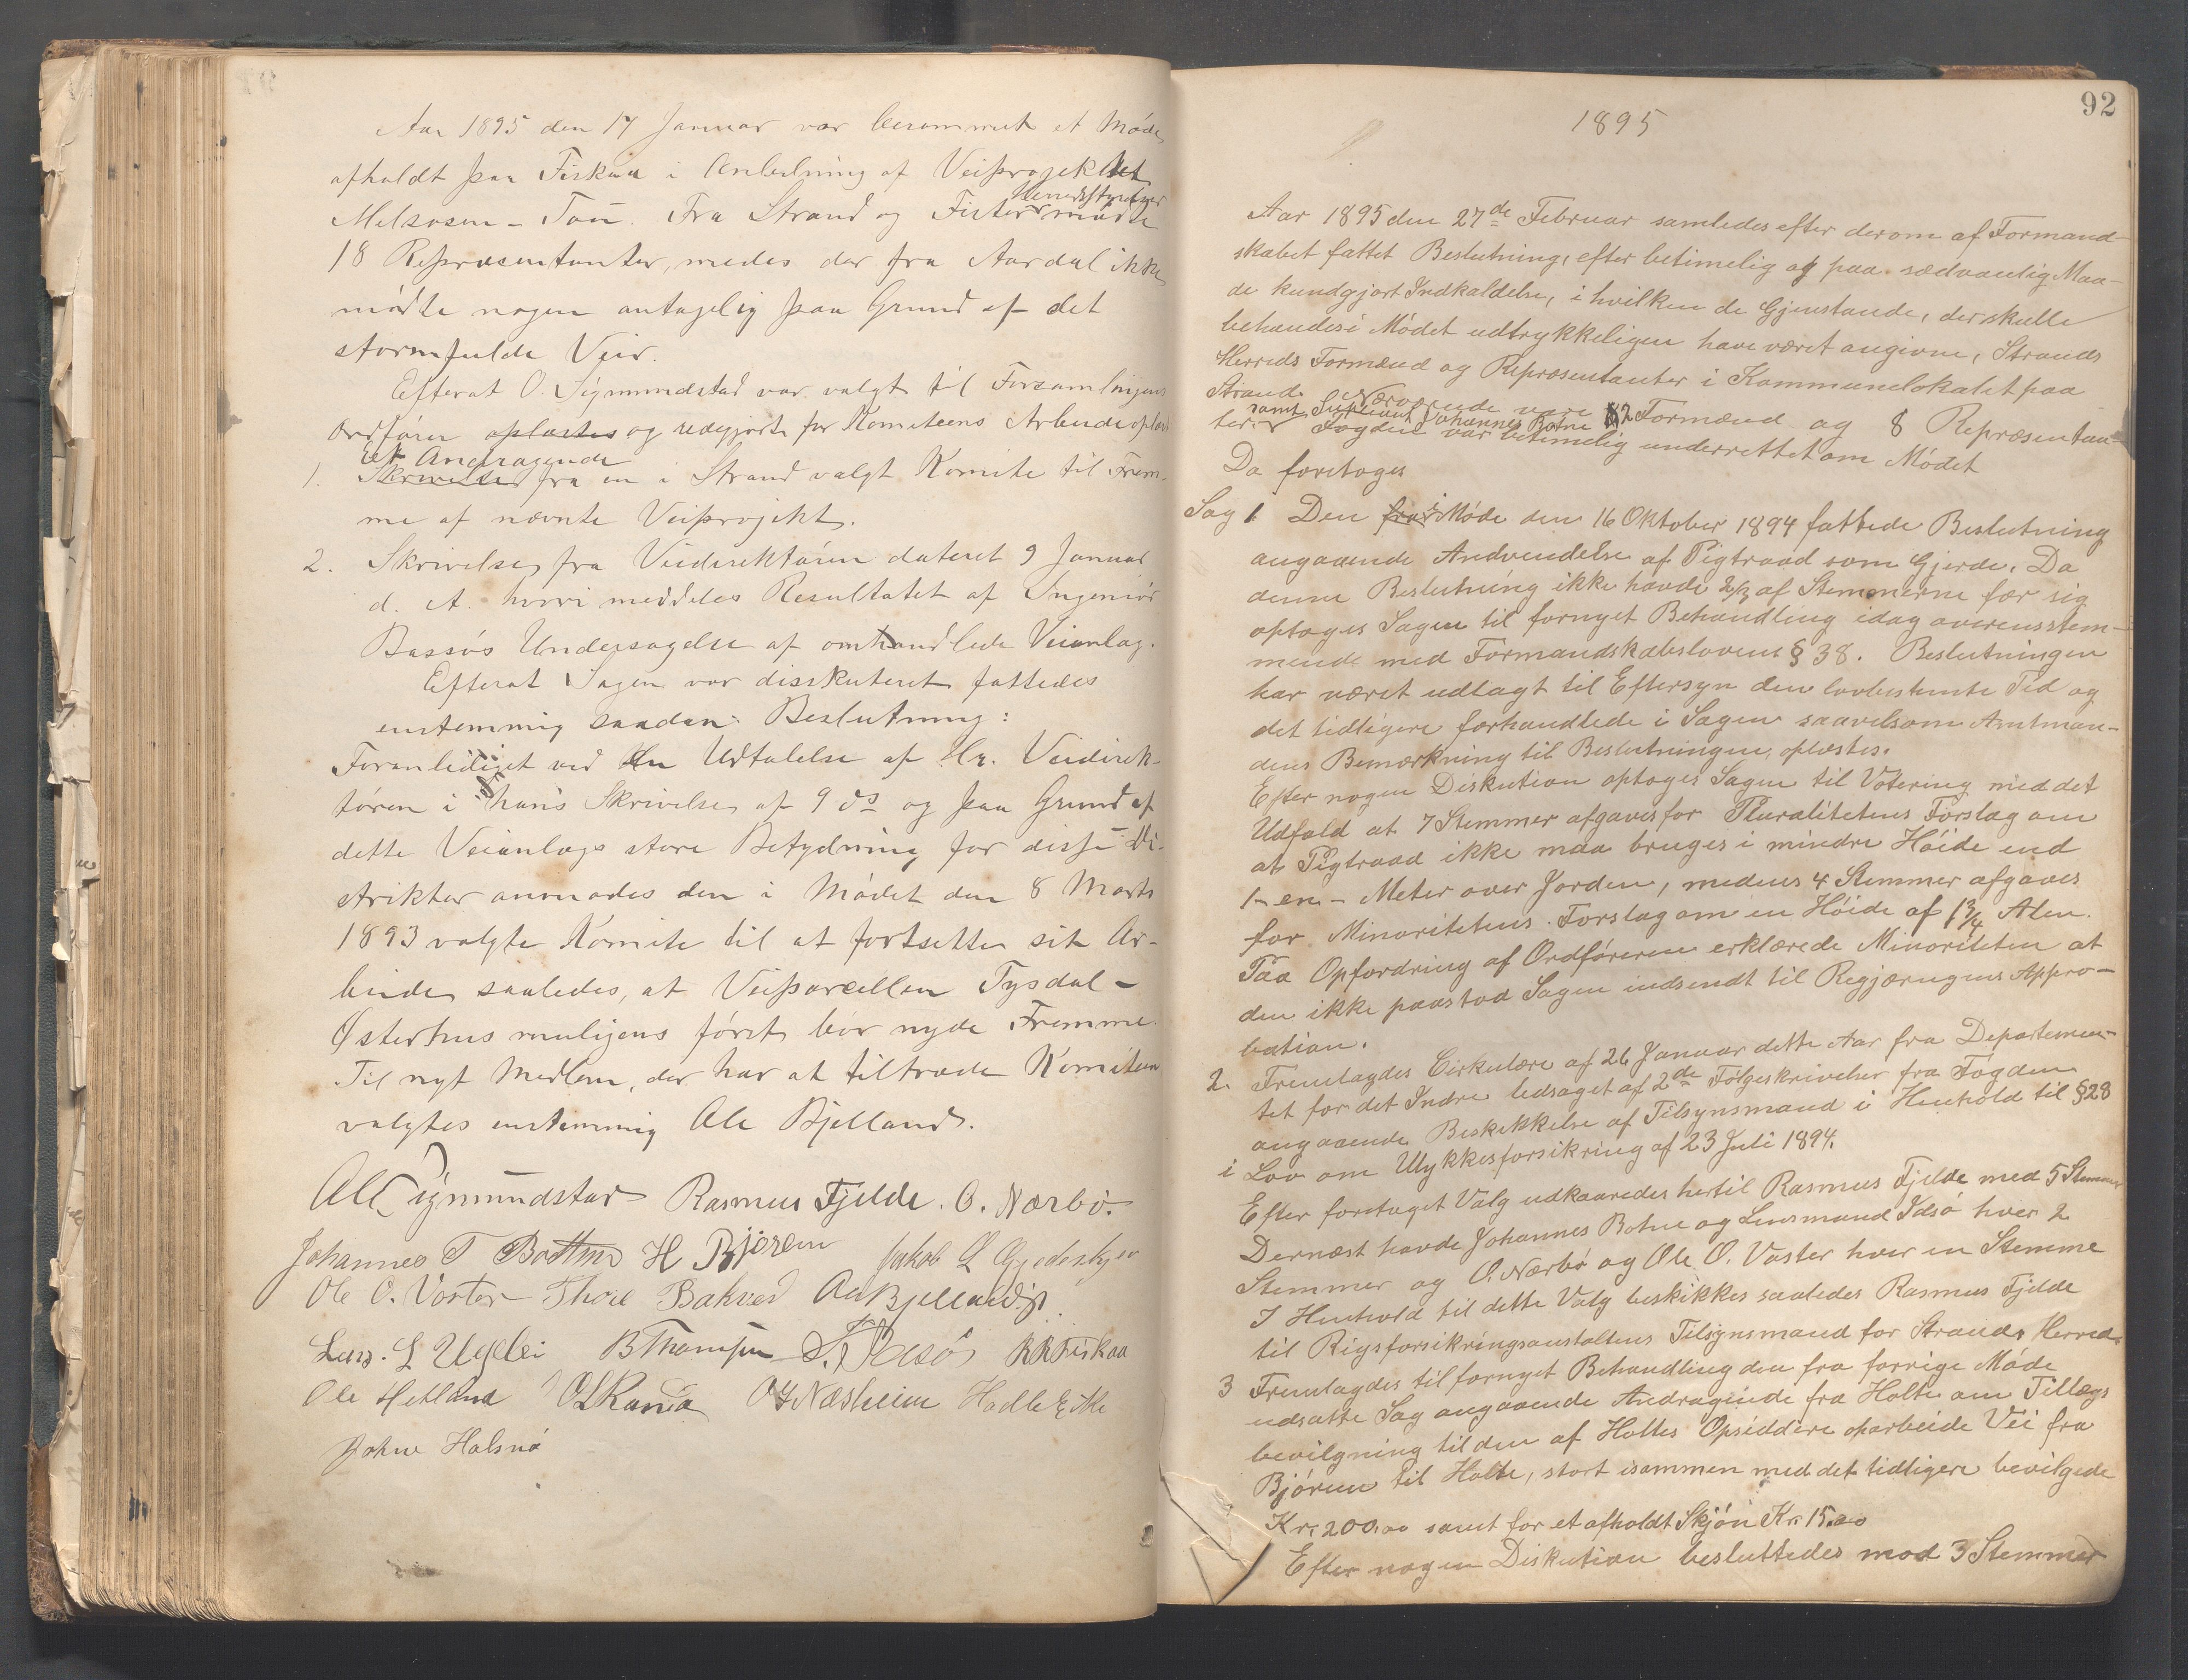 Aar 1895 den 17 Januar var berammet et Møde
afholdt paa Fiskaa i Anledning af Veiprojektet
Herredsstyrelser
Melsosen - Tou. Fra Strand og Fister mødte
18 Repræsentanter, medes der fra Aardal ikke
mødte nogen antagelig paa Grund af det
stormfulde Veir.
Efterat O. Sigmundstad var valgt til Forsamlingens
Ordfører oplæstes og redegjorde for Komiteens Arbeide oplæst
Et Andragende
1. Skrivelse fra en i Strand valgt Komite til Frem-
me af nævnte Veiprojekt.
2. Skrivelse fra Veidirektøren dateret 9 Januar
d. A. hvori meddeles Resultatet af Ingeniør
Bassøs Undersøgelse af omhandlede Veianlæg.
Efterat Sagen var disskuteret fattedes
enstemmig saadan Beslutning:
Foranlediget ved en Udtalelse af Hr. Veidirek-
tøren i hans Skrivelse af 9 ds og paa Grund af
dette Veianlægs store Betydning for disse Di-
strikter anmodes den i Mødet den 8 Marts
1893 valgte Komite til at fortsette sit Ar-
beide saaledes, at Veiparcellen Tysdal -
Østerhus muligens først bør nyde Fremme.
Til nyt Medlem, der har at tiltræde Komiteen
valgtes enstemmig Ole Bjelland.
Ole Sigmundstad Rasmus Fjelde. O. Nærbø.
Johannes T Bothne H Bjøreim Jakob L
Ole O. Vaster Thore Bakved Bjelland
Lars. L Uglei B Thomsen Idsø RR Fiskaa
Ole Hetland OL Randa Næsheim Hadle Eike
John Halsnø
92
1895
Aar 1895 den 27de Februar samledes efter derom af Formand-
skabet fattet Beslutning, efter betimelig og paa sædvanlig Maa-
de kundgjort Indkaldelse, i hvilken de Gjenstande, der skulle
behandles i Mødet udtrykkeligen have været angivne, Strands
Herreds Formænd og Repræsentanter i Kommunelokalet paa
Strand. Nærværende vare 2 Formænd og 8 Repræsentan-
samt Supleant Johannes Botne
ter. Fogden var betimelig underrettet om Mødet
Da foretoges
Sag 1 Den fra i Møde den 16 Oktober 1894 fattede Beslutning
angaaende Andvendelse af Pigtraad som Gjerde. Da
denne Beslutning ikke havde 2/3 af Stemmerne for sig
optoges Sagen til fornyet Behandling idag overensstem-
mende med Formandskabslovens § 38. Beslutningen
har været udlagt til Eftersyn den lovbestemte Tid og
det tidligere forhandlede i Sagen saavelsom Amtman-
dens Bemærkning til Beslutningen, oplæstes.
Efter nogen Diskution optoges Sagen til Votering med det
Udfald at 7 Stemmer afgaves for Pluralitetens Forslag om
at Pigtraad ikke maa bruges i mindre Høide end
1 - en - Meter over Jorden, medens 4 Stemmer afgaves
for Minoritetens Forslag om en Høide af 1 3/4 Alen.
Paa Opfordring af Ordføreren erklærede Minoriteten at
den ikke paastod Sagen indsendt til Regjæringens Appro-
bation.
2. Fremlagdes Cirkulære af 26 Januar dette Aar fra Departemen-
tet for det Indre ledsaget af 2de Følgeskrivelser fra Fogden
angaaende Beskikkelse af Tilsynsmand i Henhold til §28
i Lov om Ulykkesforsikring af 23 Juli 1894.
Efter foretaget Valg udkaaredes hertil Rasmus Fjelde med 5 Stemmer
Dernæst havde Johannes Botne og Lensmand Idsø hver 2
Stemmer og O. Nærbø og Ole O. Vaster hver en Stemme
I Henhold til dette Valg beskikkes saaledes Rasmus Fjelde
til Rigsforsikringsanstaltens Tilsynsmand for Strands Herred.
3 Fremlagdes til fornyet Behandling den fra forrige Møde
udsatte Sag angaaende Andragende fra Holte om Tillægs
bevilgning til den af Holtes Opsiddere oparbeide Vei fra
Bjøreim til Holte, stort isammen med det tidligere bevilgede
Kr. 200.00 samt for et afholdt Skjøn Kr. 15.00
Efter nogen Diskution besluttedes mod 3 Stemmer